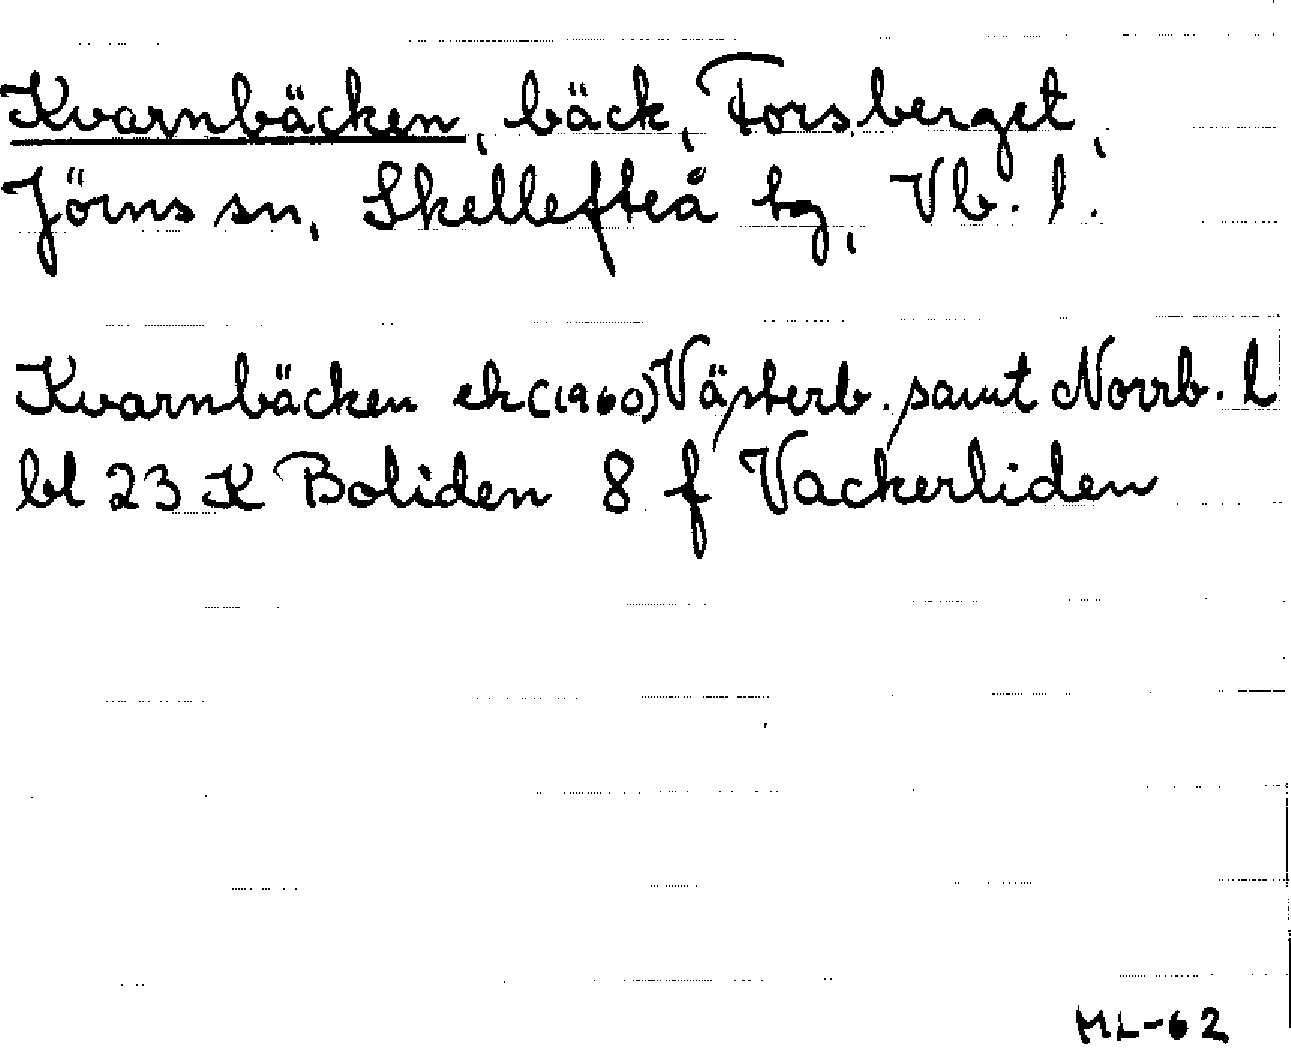 Kvarnbäcken, bäck, Forsberget,
Jörns sn, Skellefteå tg, Vb. l.
Kvarnbäcken ek (1960) Västerb. samt Norrb. l
bl 23 K Boliden 8 f Vackerliden
ML-62